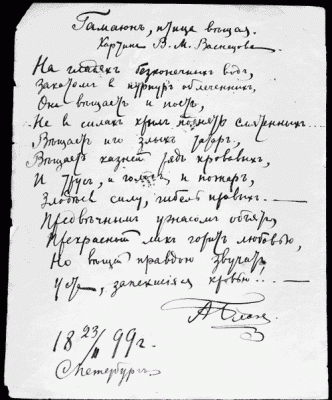 Гамаюнъ, птица вѣщая.
Картина В. М. Васнецова
На гладяхъ безконечныхъ водъ,
Закатомъ въ пурпуръ облеченныхъ,
Она вѣщаетъ и поетъ,
Не в силахъ крылъ поднять смятенныхъ
Вѣщаетъ иго злыхъ татаръ,
Вѣщаетъ казней рядъ кровавыхъ,
И трусъ, и голодъ, и пожаръ,
Злодѣевъ силу, гибель правыхъ...
Предвѣчнымъ ужасомъ объятъ,
Прекрасный ликъ горитъ любовью,
Но вѣщей правдою звучатъ
Уста, запекшіяся кровью...
А Блокъ
18 23/II 99 г.
Петербургъ